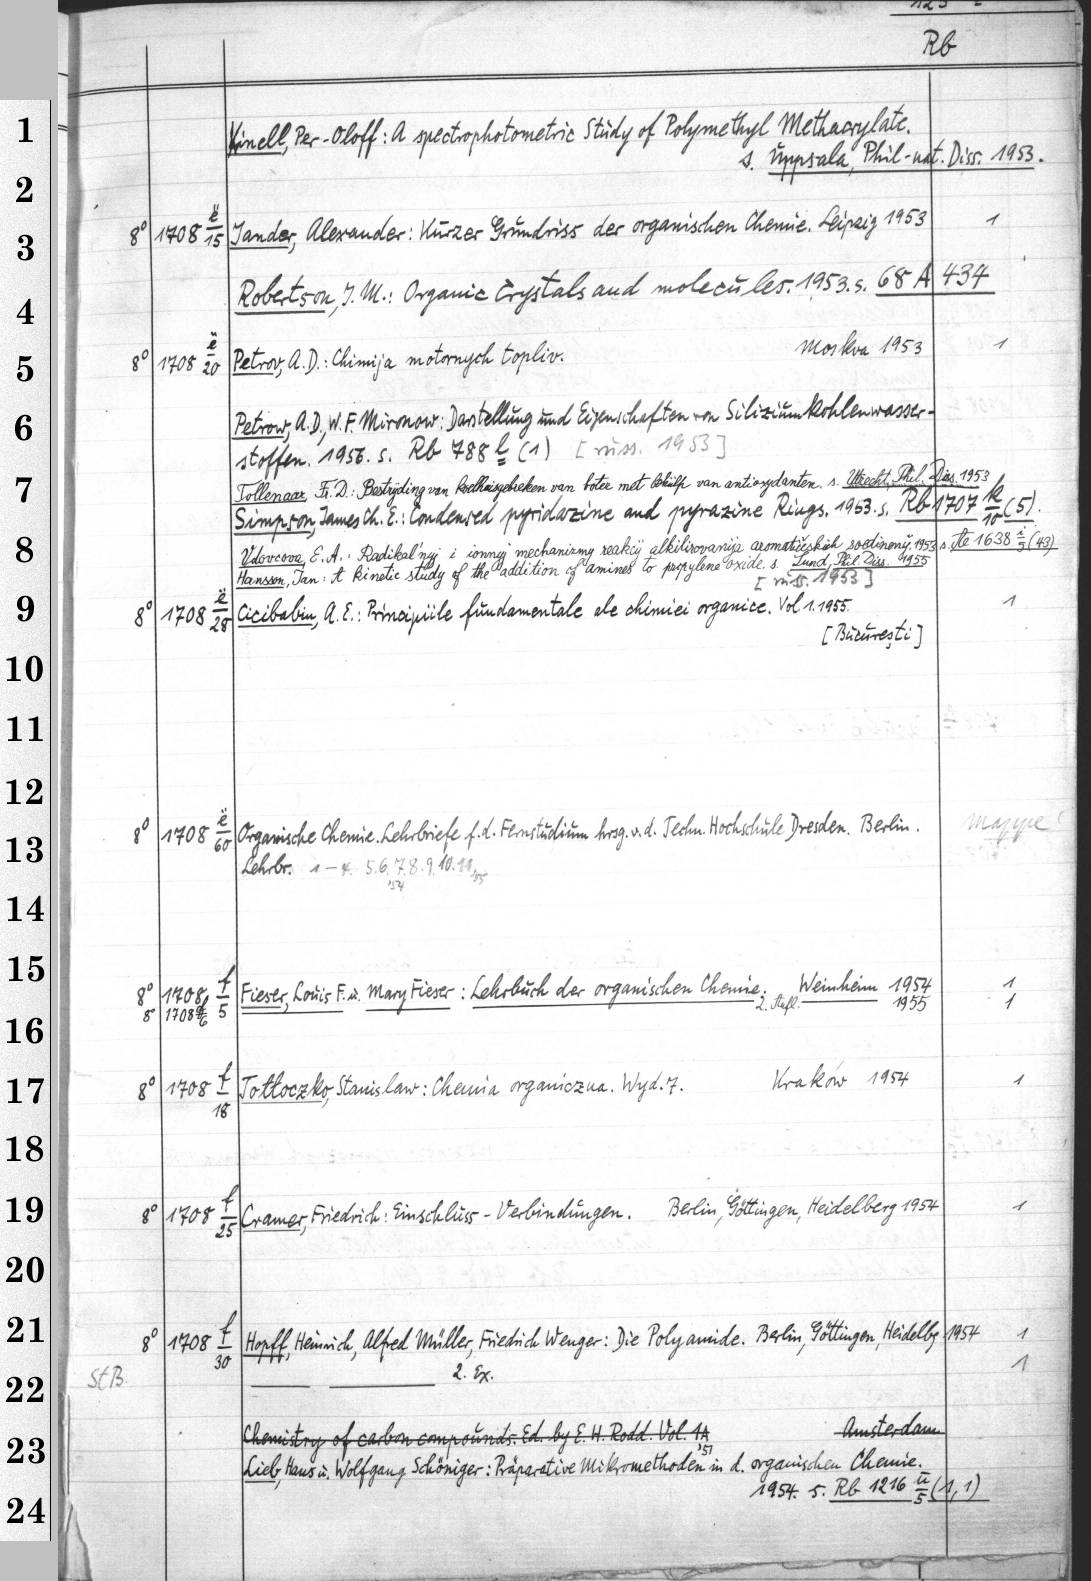 Rb
1
Kinell, Per-Oloff: A spectrophotometric Study of Polymethyl Methacrylate.
s. Uppsala, Phil-nat. Diss. 1953.
2
3
8° 1708 ë/15 Jander, Alexander: Kurzer Grundriss der organischen Chemie. Leipzig 1953 1
Robertson, J. M.: Organic Crystals and molecules. 1953. s. 68 A 434
4
5
8° 1708 ë/20 Petrov, A. D.: Chimija motornych topliv. Moskva 1953 1
6
Petrow, A. D., W. F. Mironow: Darstellung und Eigenschaften von Siliziumkohlenwasser-
stoffen. 1956. s. Rb 788 l (1) [russ. 1953]
7
Tollenaar, Fr. D.: Bestrijding van van boter met behulp van antioxydanten. s. Utrecht, Phil. Diss. 1953
Simpson, James Ch. E.: Condensed pyridazine and pyrazine Rings. 1953. s. Rb 1707 k/10 (5).
8
Vdovcova, E. A.: Radikal'nyj i ionnyj mechanizmy reakcij alkilirovanija aromatičeskich soedinenij. 1953 s. 1638 i/5 (43)
Hansson, Jan: A kinetic study of the addition of amines to propylene oxide. s. Lund, Phil. Diss. 1955
[russ. 1953]
9
8° 1708 ë/28 Cicibabin, A. E.: Principiile fundamentale ale chimiei organice. Vol 1. 1955. 1
[București]
10
11
12
13
8° 1708 ë/60 Organische Chemie. Lehrbriefe f. d. Fernstudium hrsg. v. d. Techn. Hochschule Dresden. Berlin. Mappe
Lehrbr. 1-4. 5.6.7.8.9.10.11
'54 '55
14
15
8° 1708 f/5 Fieser, Louis F. u. Mary Fieser: Lehrbuch der organischen Chemie. Weinheim 1954 1
8° 1708 f/6 2. Aufl. 1955 1
16
17
8° 1708 f/18 Tołłoczko, Stanislaw: Chemia organiczna. Wyd. 7. Kraków 1954 1
18
19
8° 1708 f/25 Cramer, Friedrich: Einschluss-Verbindungen. Berlin, Göttingen, Heidelberg 1954 1
20
21
8° 1708 f/30 Hopff, Heinrich, Alfred Müller, Friedrich Wenger: Die Polyamide. Berlin, Göttingen, Heidelbg 1954 1
22
StB. 2. Ex. 1
23
Chemistry of carbon compounds. Ed. by E. H. Rodd. Vol. 1A Amsterdam
'51
Lieb, Hans u. Wolfgang Schöniger: Präparative Mikromethoden in d. organischen Chemie.
24
1954. s. Rb 1216 ü/5 (1,1)